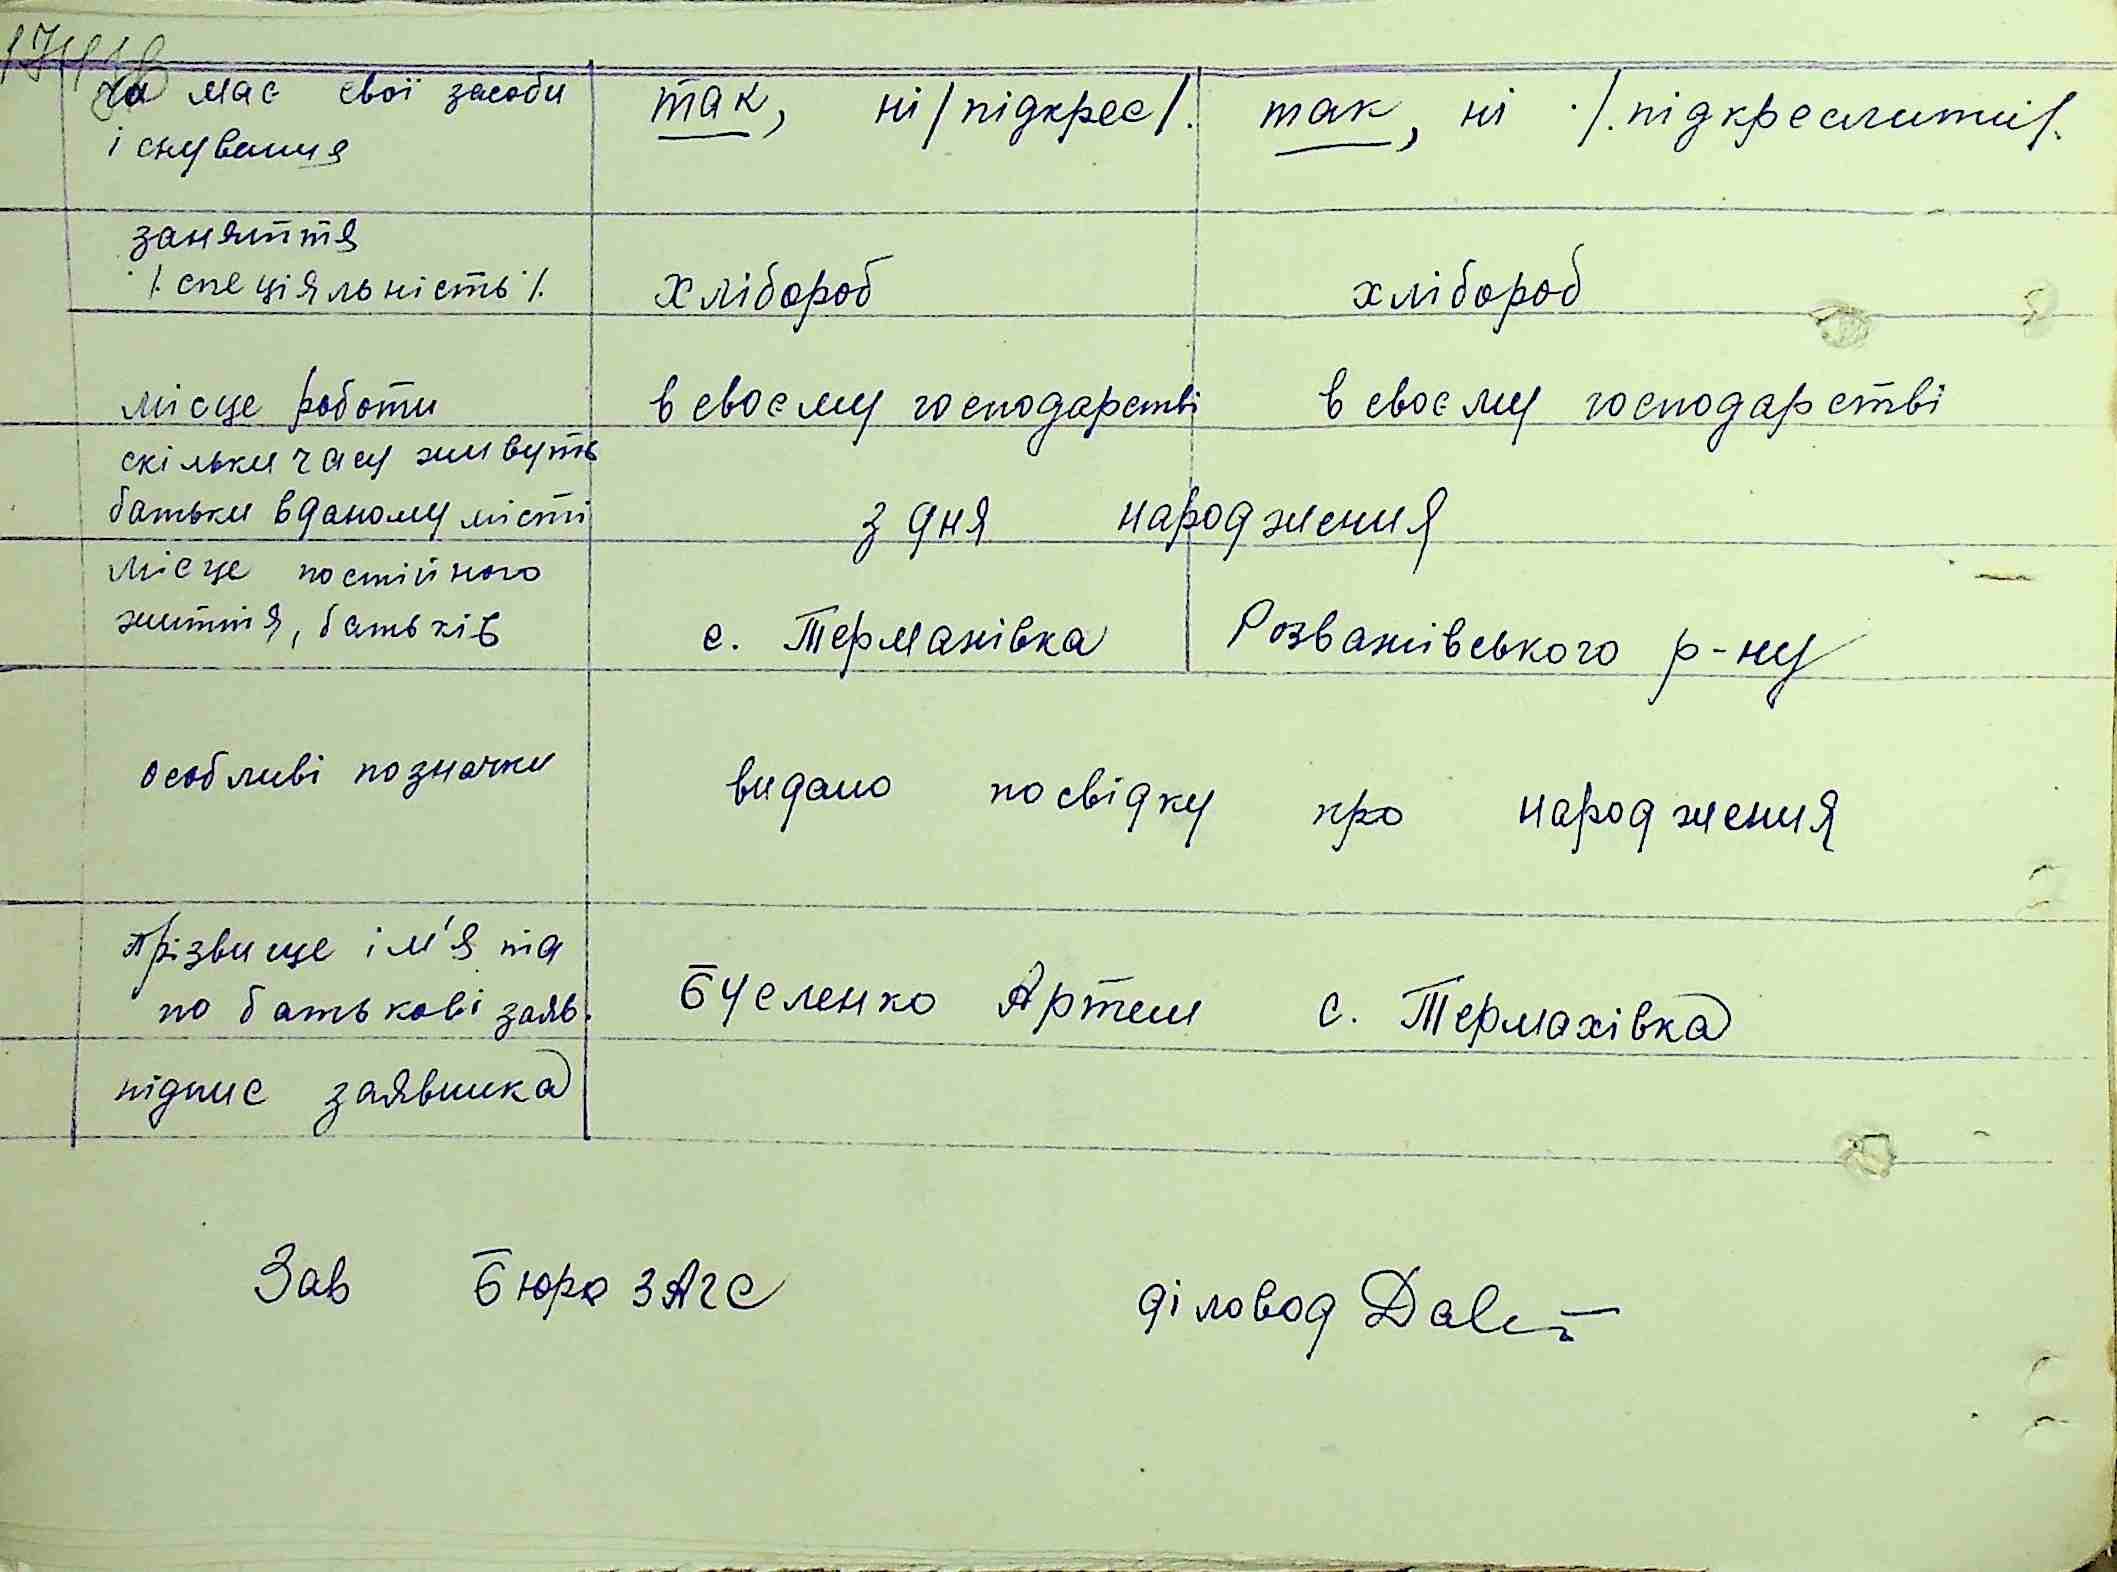 чи має свої засоби так, ні /підкрес/. так, ні ./.підкреслити/.
існування
заняття
/.спеціяльність/. хлібороб хлібороб
місце роботи в своєму господарстві в своєму господарстві
скільки часу живуть
батьки в даному місті з дня народження
місце постійного
життя, батьків с. Термахівка Розважівського р-ну
особливі позначки видано посвідку про народження
прізвище ім'я та
по батькові заяв. Бусленко Артем с. Термахівка
підпис заявника
Зав Бюро ЗАГС діловод